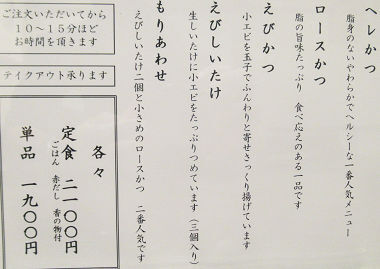 ヘレかつ
脂身のないやわらかでヘルシーな一番人気メニュー
ロースかつ
脂の旨味たっぷり 食べ応えのある一品です
えびかつ
小エビを玉子でふんわりと寄せさっくり揚げています
えびしいたけ
生しいたけに小エビをたっぷりつめています(三個入り)
もりあわせ
えびしいたけ二個と小さめのロースかつ 二番人気です
ご注文いただいてから
10～15分ほど
お時間を頂きます
テイクアウト承ります
各々
定食 二一〇〇円
ごはん 赤だし 香の物付
単品 一九〇〇円